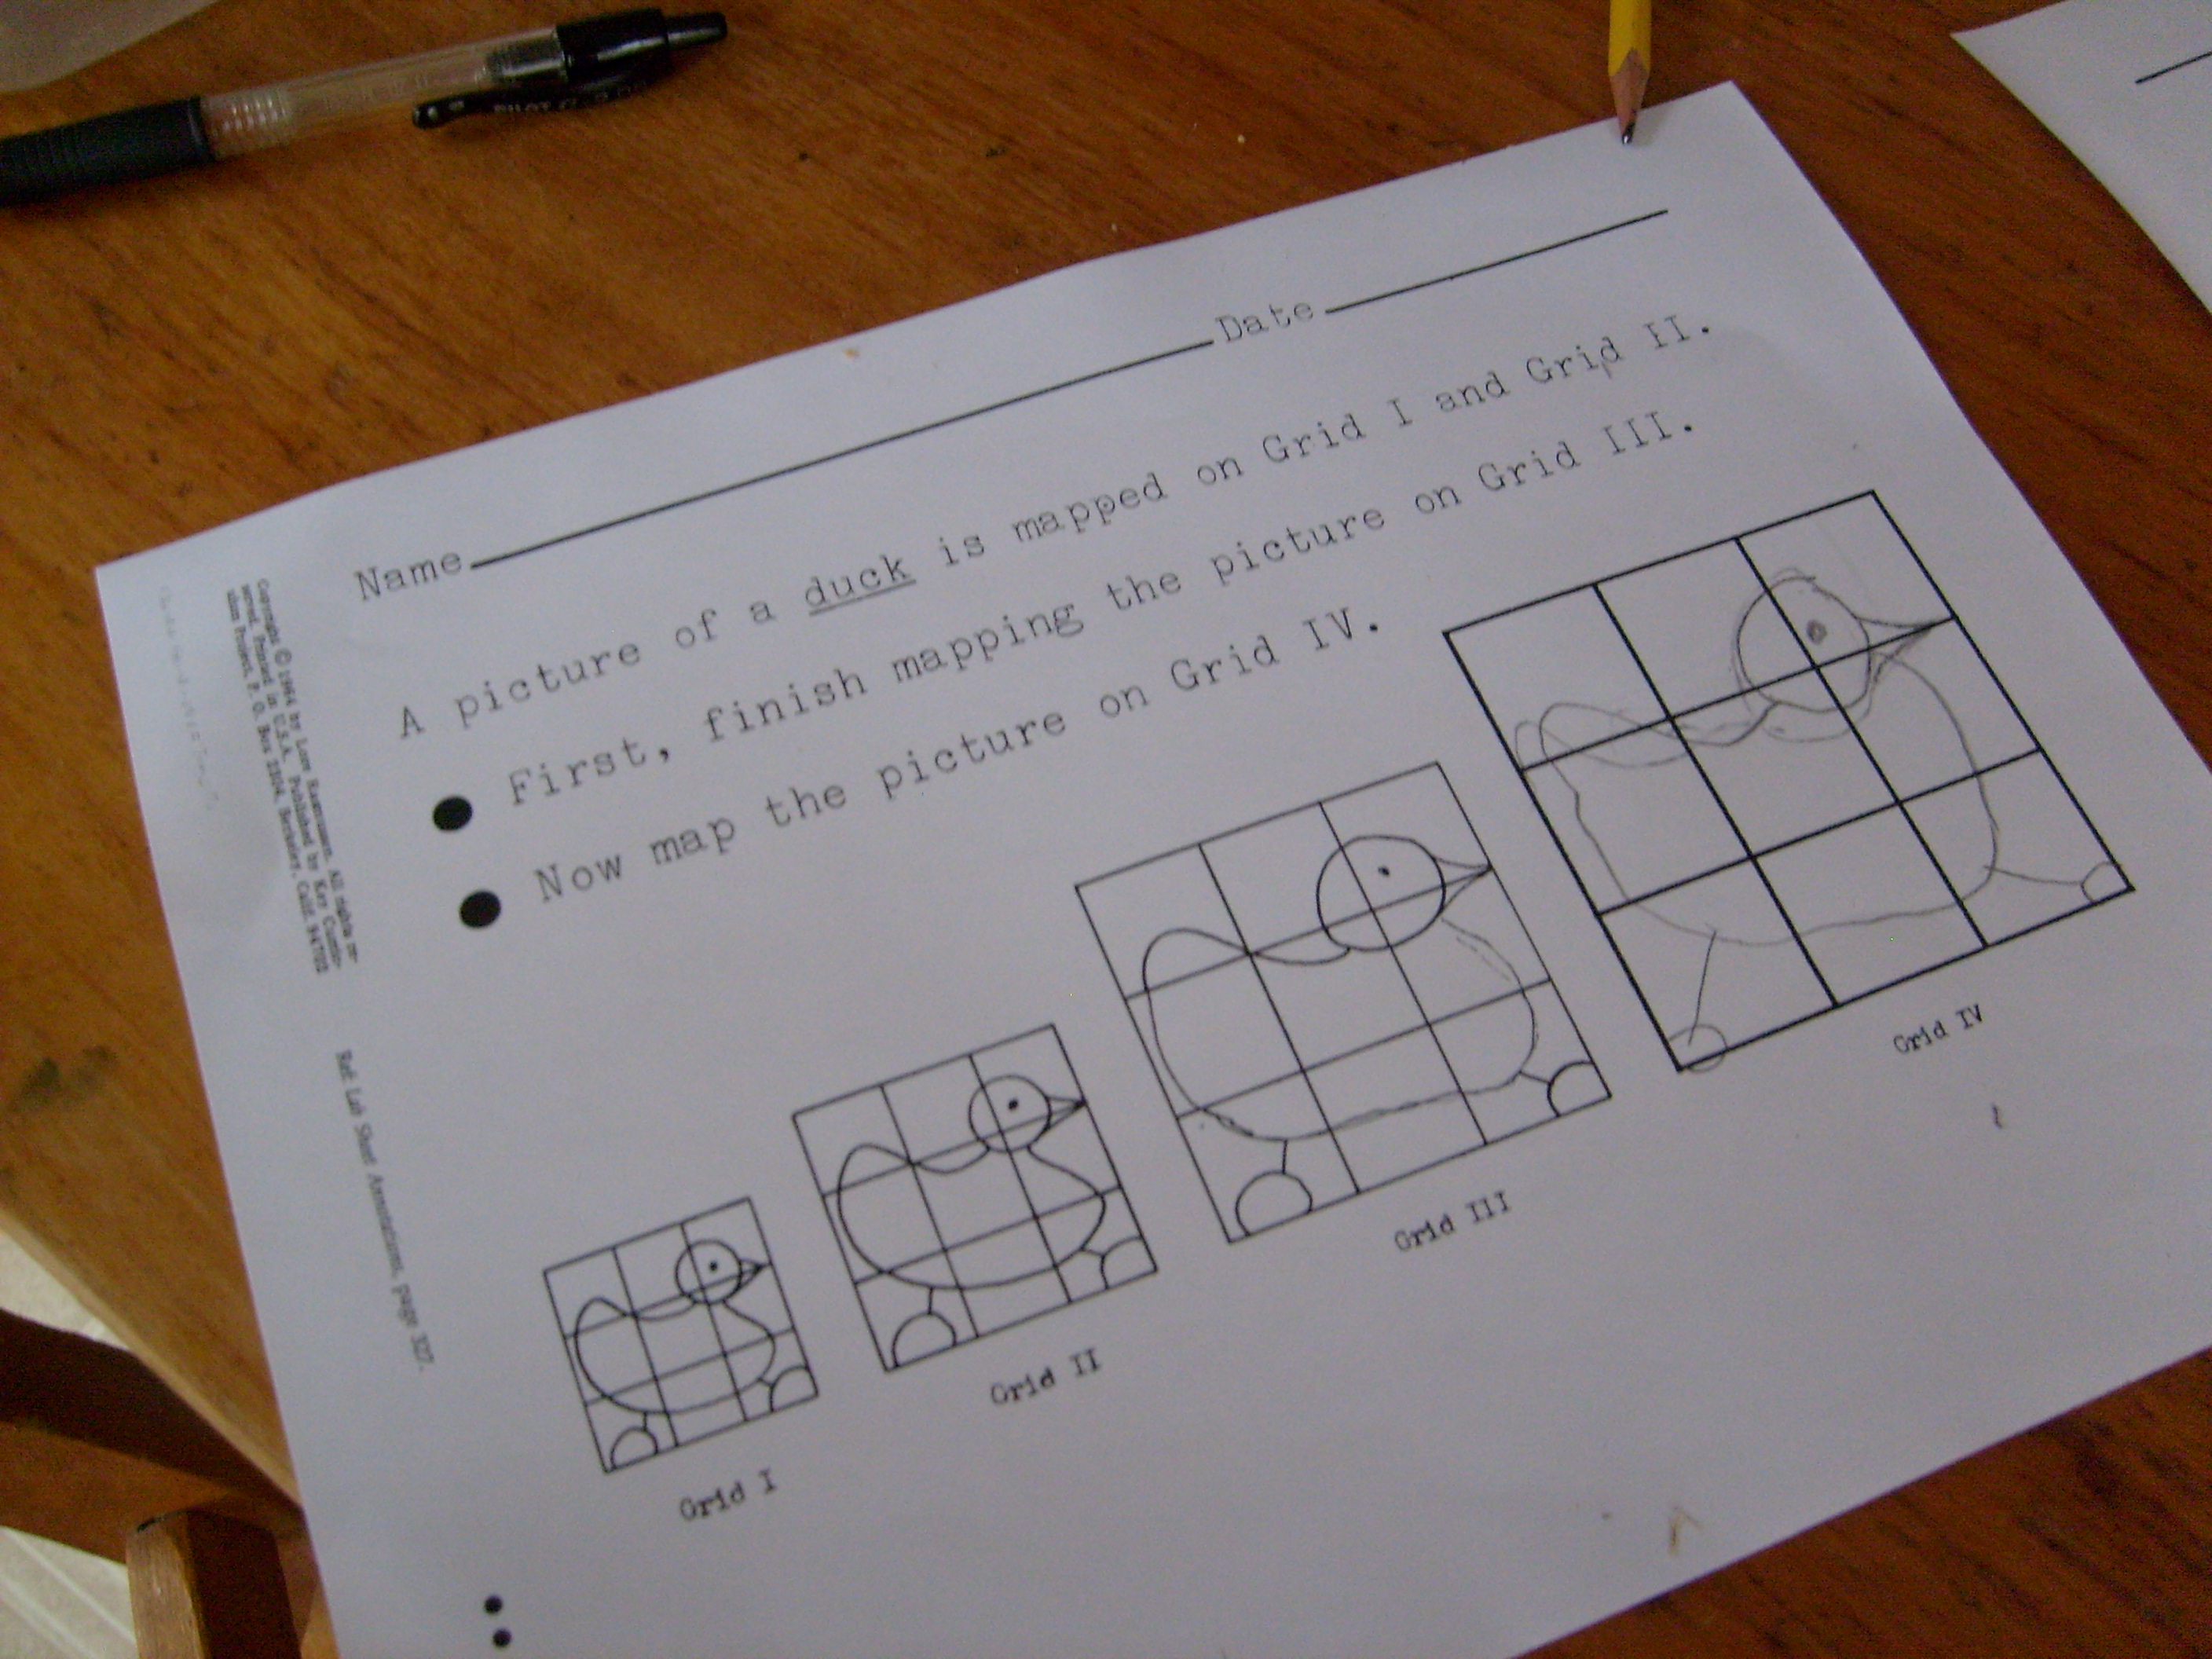 Name Date
A picture of a duck is mapped on Grid I and Grid II.
● First, finish mapping the picture on Grid III.
● Now map the picture on Grid IV.
Grid I
Grid II
Grid III
Grid IV
Copyright © 1964 by Lore Rasmussen. All rights re-
served. Printed in U.S.A. Published by Key Curric-
ulum Project, P. O. Box 2304, Berkeley, Calif. 94702
Ref: Lab Sheet Annotations, page 327.
PILOT